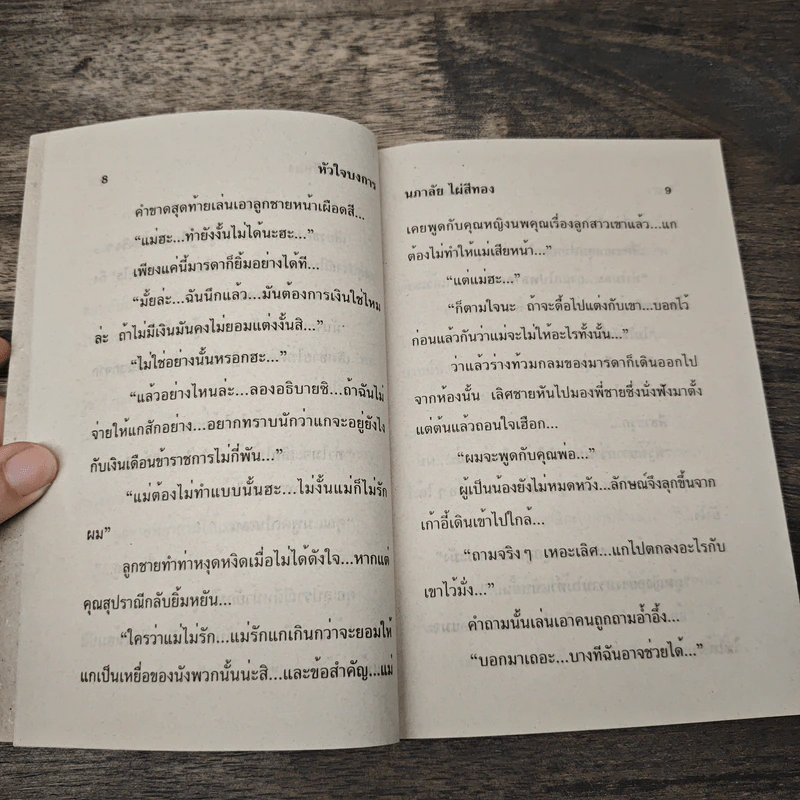 8
หัวใจบงการ
คำขาดสุดท้ายเล่นเอาลูกชายหน้าเผือดสี...
“แม่ฮะ...ทำยังงั้นไม่ได้นะฮะ...”
เพียงแค่นี้มารดาก็ยิ้มอย่างได้ที...
“มั้ยล่ะ...ฉันนึกแล้ว...มันต้องการเงินใช่ไหม
ล่ะ ถ้าไม่มีเงินมันคงไม่ยอมแต่งงั้นสิ...”
“ไม่ใช่อย่างนั้นหรอกฮะ...”
“แล้วอย่างไหนล่ะ...ลองอธิบายซิ...ถ้าฉันไม่
จ่ายให้แกสักอย่าง...อยากทราบนักว่าแกจะอยู่ยังไง
กับเงินเดือนข้าราชการไม่กี่พัน...”
“แม่ต้องไม่ทำแบบนั้นฮะ...ไม่งั้นแม่ก็ไม่รัก
ผม”
ลูกชายทำท่าหงุดหงิดเมื่อไม่ได้ดังใจ...หากแต่
คุณสุปราณีกลับยิ้มหยัน...
“ใครว่าแม่ไม่รัก...แม่รักแกเกินกว่าจะยอมให้
แกเป็นเหยื่อของนังพวกนั้นน่ะสิ...และข้อสำคัญ...แม่
นภาลัย ไผ่สีทอง
9
เคยพูดกับคุณหญิงนพคุณเรื่องลูกสาวเขาแล้ว...แก
ต้องไม่ทำให้แม่เสียหน้า...”
“แต่แม่ฮะ...”
“ก็ตามใจนะ ถ้าจะดื้อไปแต่งกับเขา...บอกไว้
ก่อนแล้วกันว่าแม่จะไม่ให้อะไรทั้งนั้น...”
ว่าแล้วร่างท้วมกลมของมารดาก็เดินออกไป
จากห้องนั้น เลิศชายหันไปมองพี่ชายซึ่งนั่งฟังมาตั้ง
แต่ต้นแล้วถอนใจเฮือก...
“ผมจะพูดกับคุณพ่อ...”
ผู้เป็นน้องยังไม่หมดหวัง...ลักษณ์จึงลุกขึ้นจาก
เก้าอี้เดินเข้าไปใกล้...
“ถามจริงๆ เหอะเลิศ...แกไปตกลงอะไรกับ
เขาไว้มั่ง...”
คำถามนั้นเล่นเอาคนถูกถามอ้ำอึ้ง...
“บอกมาเถอะ...บางทีฉันอาจช่วยได้...”